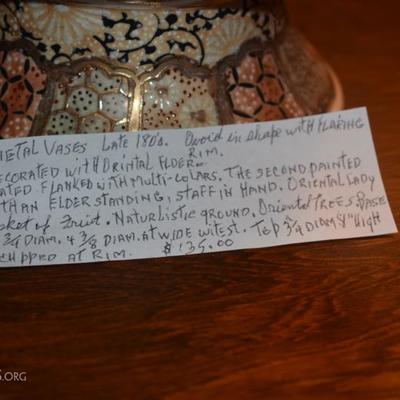 METAL VASES LATE 180's. Ovoid in shape with FLARING
RIM.
ECORATED WITH ORINTAL ELDER
ATED FLANKED WITH MULTI-COLARS. THE SECOND PAINTED
TH AN ELDER STANDING, STAFF IN HAND. ORIENTAL LADY
sket of Fruit. NATURLISTIC GROUND. ORIENTAL TREES. BASE
3/4 DIAM. 4 3/8 DIAM. AT WIDE WITEST. TOP 3 3/4 DIAM 8" HIGH
CHPPED AT RIM. $135.00
S.ORG